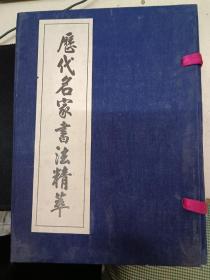 歷代名家書法精萃